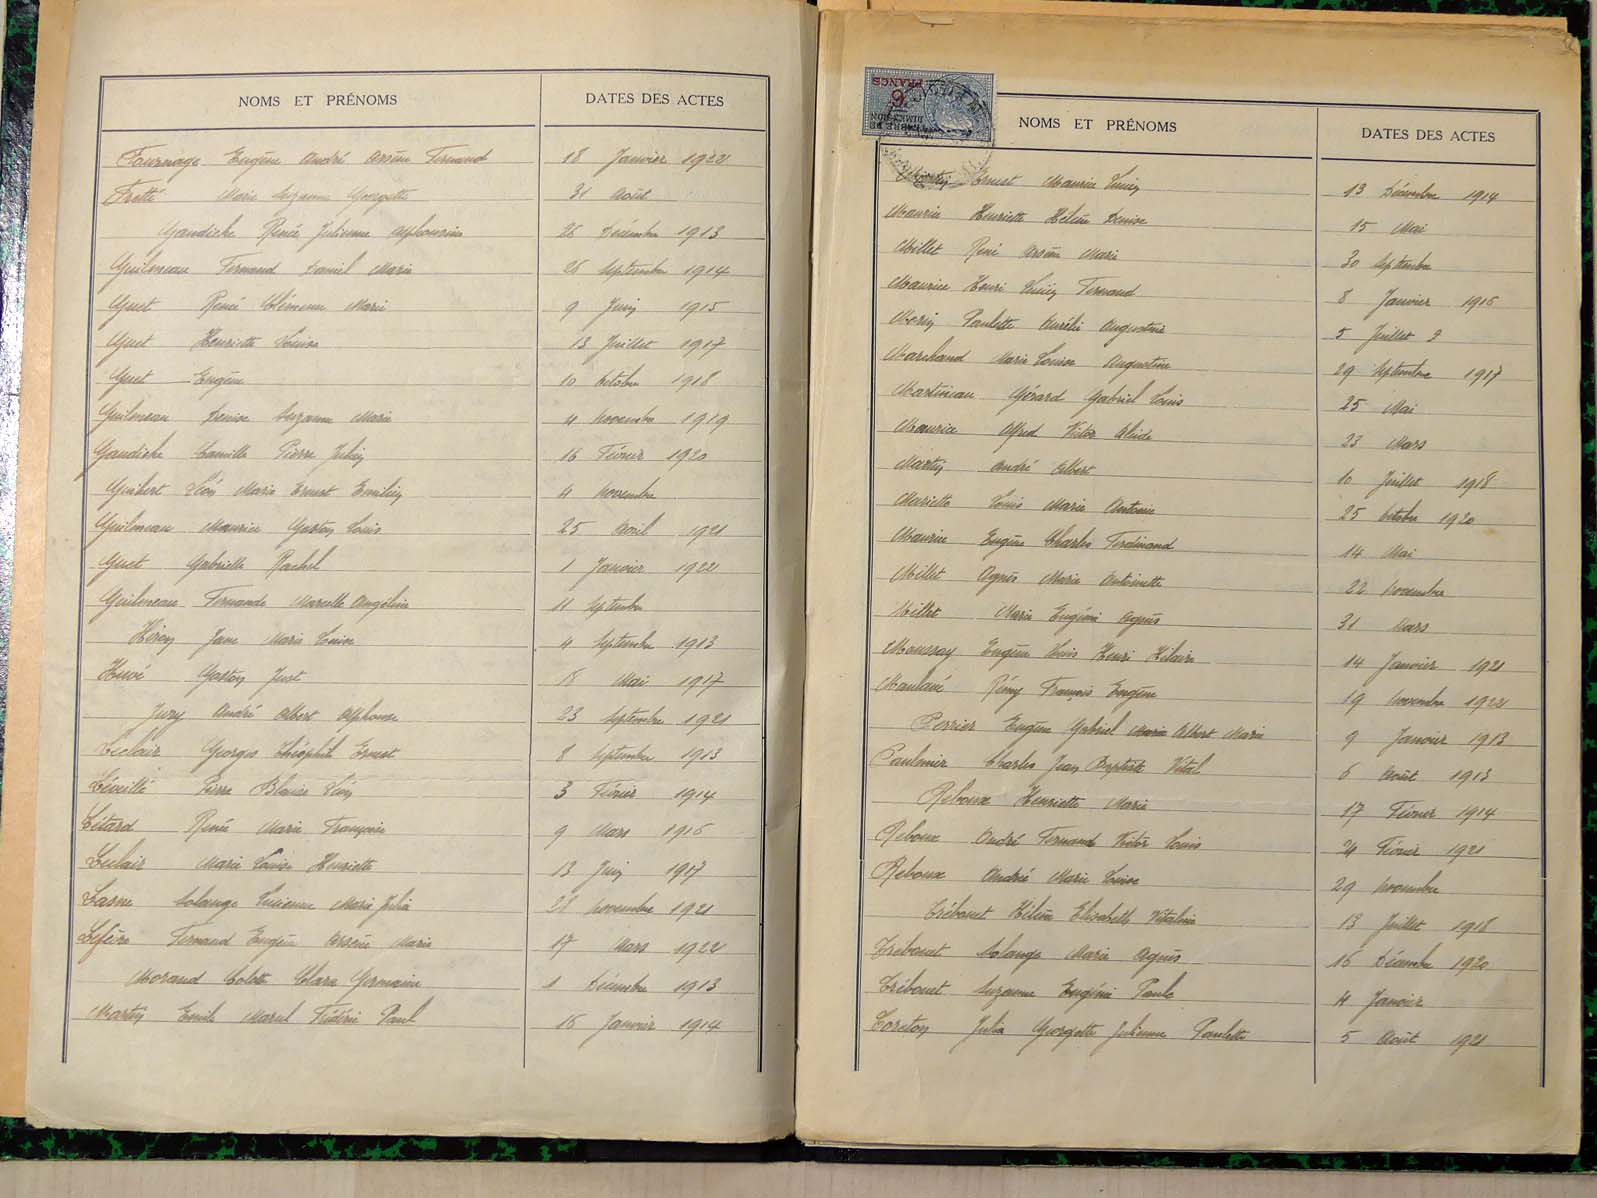 NOMS ET PRÉNOMS DATES DES ACTES
Fournage Eugène André Arsène Fernand 18 Janvier 1922
Frette Marie Suzanne Georgette 31 Août
Gaudiche Renée Julienne Alphonsine 26 Décembre 1913
Guilmeau Fernand Daniel Marie 26 Septembre 1914
Guet René Clémence Marie 9 Juin 1915
Guet Henriette Louise 13 Juillet 1917
Guet Eugène 10 Octobre 1918
Guilmeau Denise Suzanne Marie 4 Novembre 1919
Gaudiche Camille Pierre Julien 16 Février 1920
Guibert Léon Marie Ernest Emilien 4 Novembre
Guilmeau Maurice Gaston Louis 25 Avril 1921
Guet Gabrielle Rachel 1 Janvier 1922
Guilmeau Fernande Marcelle Angéline 11 Septembre
Jane Marie Louise 4 Septembre 1913
Huvé Gaston Just 18 Mai 1917
Jury André Albert Alphonse 23 Septembre 1921
Leclair Georges Théophile Ernest 8 Septembre 1913
Léveillé Pierre Blaise Léon 3 Février 1914
Létard Renée Marie Françoise 9 Mars 1916
Leclair Marie Louise Henriette 13 Juin 1917
Lasne Solange Lucienne Marie Julia 28 Novembre 1921
Lefèvre Fernand Eugène Arsène Marie 17 Mars 1922
Morand Colette Clara Germaine 1 Décembre 1913
Martin Emile Marcel Frédéric Paul 16 Janvier 1914
6
FRANCS
NOMS ET PRÉNOMS DATES DES ACTES
Martin Ernest Maurice Lucien 13 Décembre 1914
Maurice Henriette Hélène Denise 15 Mai
Millet René Arsène Marie 30 Septembre
Maurice Henri Lucien Fernand 8 Janvier 1916
Morin Paulette Aurélie Augustine 5 Juillet
Marchand Marie Louise Augustine 29 Septembre 1917
Martineau Gérard Gabriel Louis 25 Mai
Maurice Alfred Victor Alcide 23 Mars
Martin André Albert 10 Juillet 1918
Mariette Louis Marie Antoine 25 Octobre 1920
Maurice Eugène Charles Ferdinand 14 Mai
Millet Agnès Marie Antoinette 22 Novembre
Millet Marie Eugénie Agnès 31 Mars
Moussay Eugène Louis Henri Hilaire 14 Janvier 1921
Rémy François Eugène 19 Novembre 1922
Perrier Eugène Gabriel Marie Albert Marie 9 Janvier 1913
Paulmier Charles Jean Baptiste Vital 6 Août 1913
Reboux Henriette Marie 17 Février 1914
Reboux André Fernand Victor Louis 24 Février 1921
Reboux Andrée Marie Louise 29 Novembre
Trébouet Hélène Elisabeth Vitaline 13 Juillet 1918
Trebouet Solange Marie Agnès 16 Décembre 1920
Trébouet Suzanne Eugénie Paule 4 Janvier
Toreton Julia Georgette Julienne Paulette 5 Août 1921